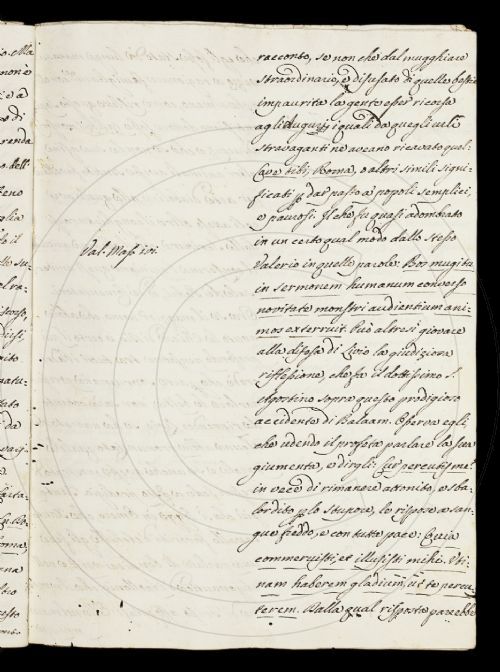 racconto, se non che dal mugghiare
straordinario, e disusato di quelle bestie
impaurita la gente esser ricorsa
agli Auguri; i quali da quegli urli
stravaganti ne aveano ricavato quel:
Cave tibi, Roma, o altri simili signi-
ficati p dar pasto a' popoli semplici,
e paurosi. Il che fu quasi adombrato
in un certo qual modo dallo stesso
Val. Mass. ivi.
Valerio in quelle parole: Bos mugitu
in sermonem humanum converso
novitate monstri audientium ani-
mos exterruit. Può altresì giovare
alla difesa di Livio la giudiziosa
riflessione, che fa il dottissimo S.
Agostino sopra questo prodigioso
accidente di Balaam. Osserva egli,
che udendo il profeta parlare la sua
giumenta, e dirgli: Cur percutis me?
in vece di rimanere attonito, e sba-
lordito p lo stupore, le rispose a san-
gue freddo, e con tutta pace: Quia
commeruisti, et illusisti mihi. Uti-
nam haberem gladium, ut te percu-
terem. Dalla qual risposta parrebbe